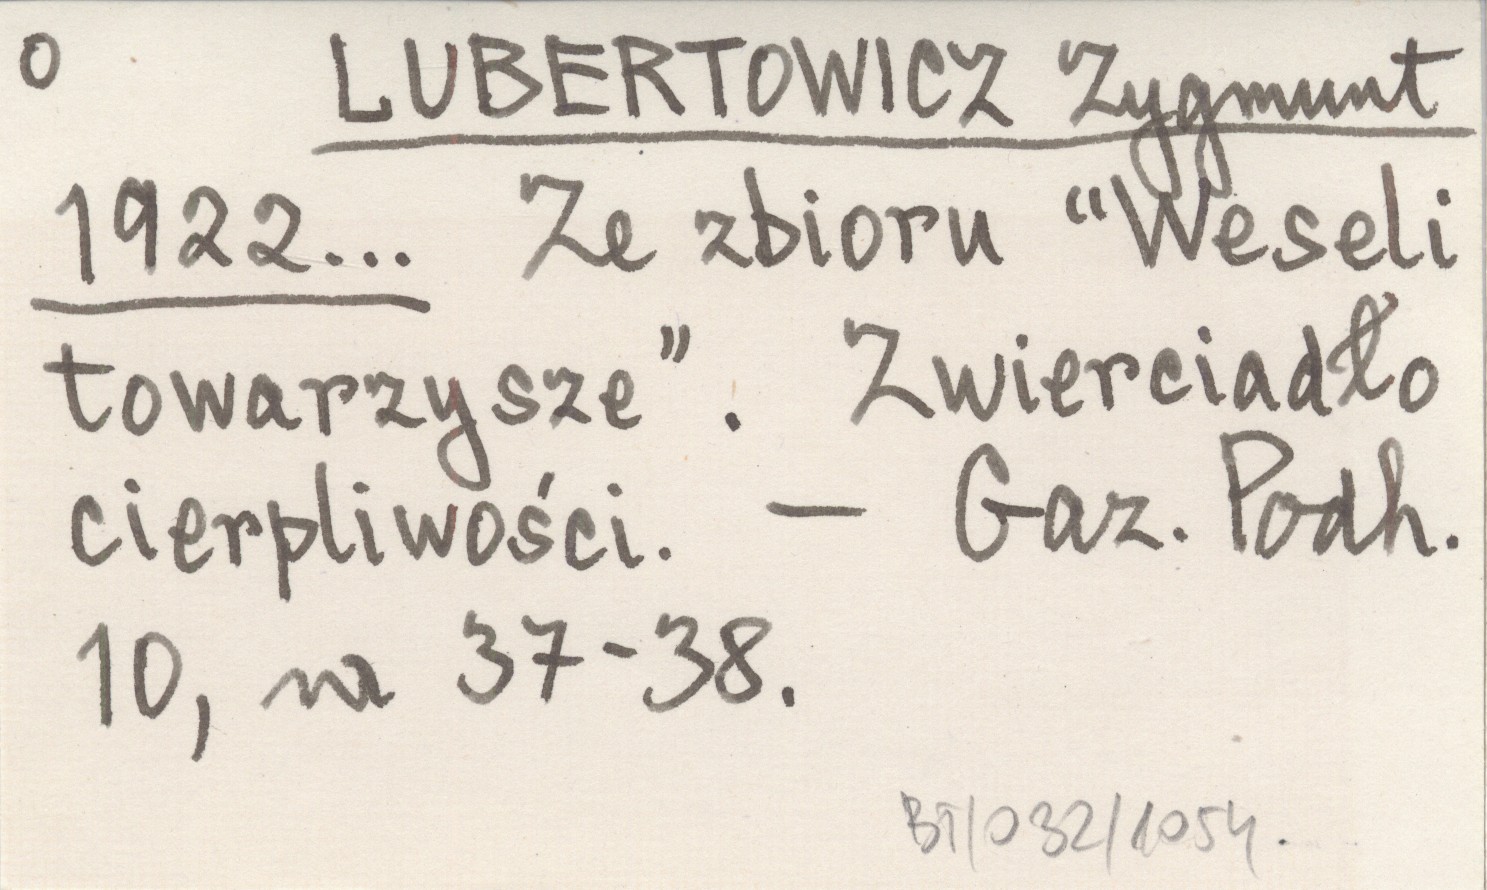 0 LUBERTOWICZ Zygmunt
1922... Ze zbioru "Weseli
towarzysze". Zwierciadło
cierpliwości. — Gaz. Podh.
10, nr 37-38.
BT/032/1054.